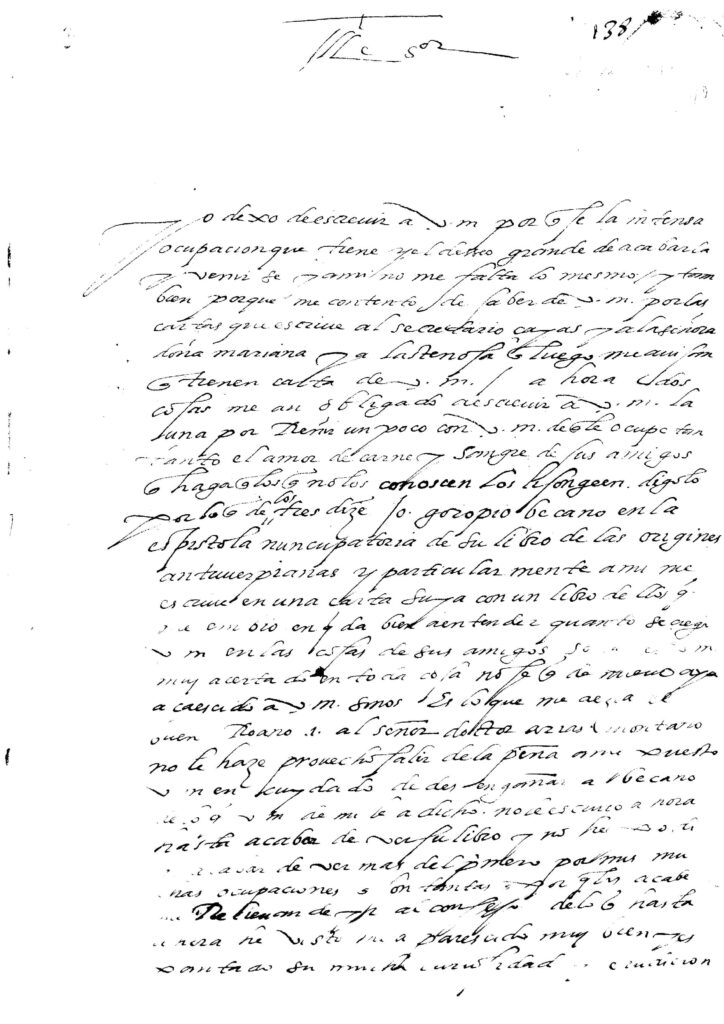 138
Ille Sor
No dexo de escreuir a v. m. por q̃ se la intensa
ocupacion que tiene y el desseo grande de acabarla
y venir se y a mi no me falta lo mesmo / y tam
bien porque me contento de saber de v. m. por las
cartas que escriue al secretario çayas y a la señora
doña mariana y a q̃ luego me auisan
q̃ tienen carta de v. m. / a hora dos
cosas me an obligado a escreuir a v. m. la
una por Reñir un poco con v. m. de q̃ le ocupe tan
tanto el amor de carne y sangre de sus amigos
q̃ haga q̃ los q̃ no los conoscen los lisongeen. digolo
por lo q̃ de los tres dize Jo. goropio becano en la
epistola nuncupatoria de su libro de las origines
antuuerpianas y particular mente a mi me
escriue en una carta suya con un libro de llos q̃
me embio en q̃ da bien a entender quanto se ciega
v m en las cosas de sus amigos
muy acertado en toda cosa no se q̃ de nueuo aya
acaescido a v. m. Es lo que me
buen Roano al señor doctor arias montano
no le haze prouecho salir de la peña a me puesto
v m en cuydado de desengañar a becano
de lo q̃ v m de mi le a dicho. no le escriuo a hora
hasta acabar de ver su libro y no he
acabar de ver mas del primero por mis mu
chas ocupaciones
al consejo de lo q̃ hasta
ahora he visto me a parescido muy bien y es
pantado su mucha curiosidad erudicion